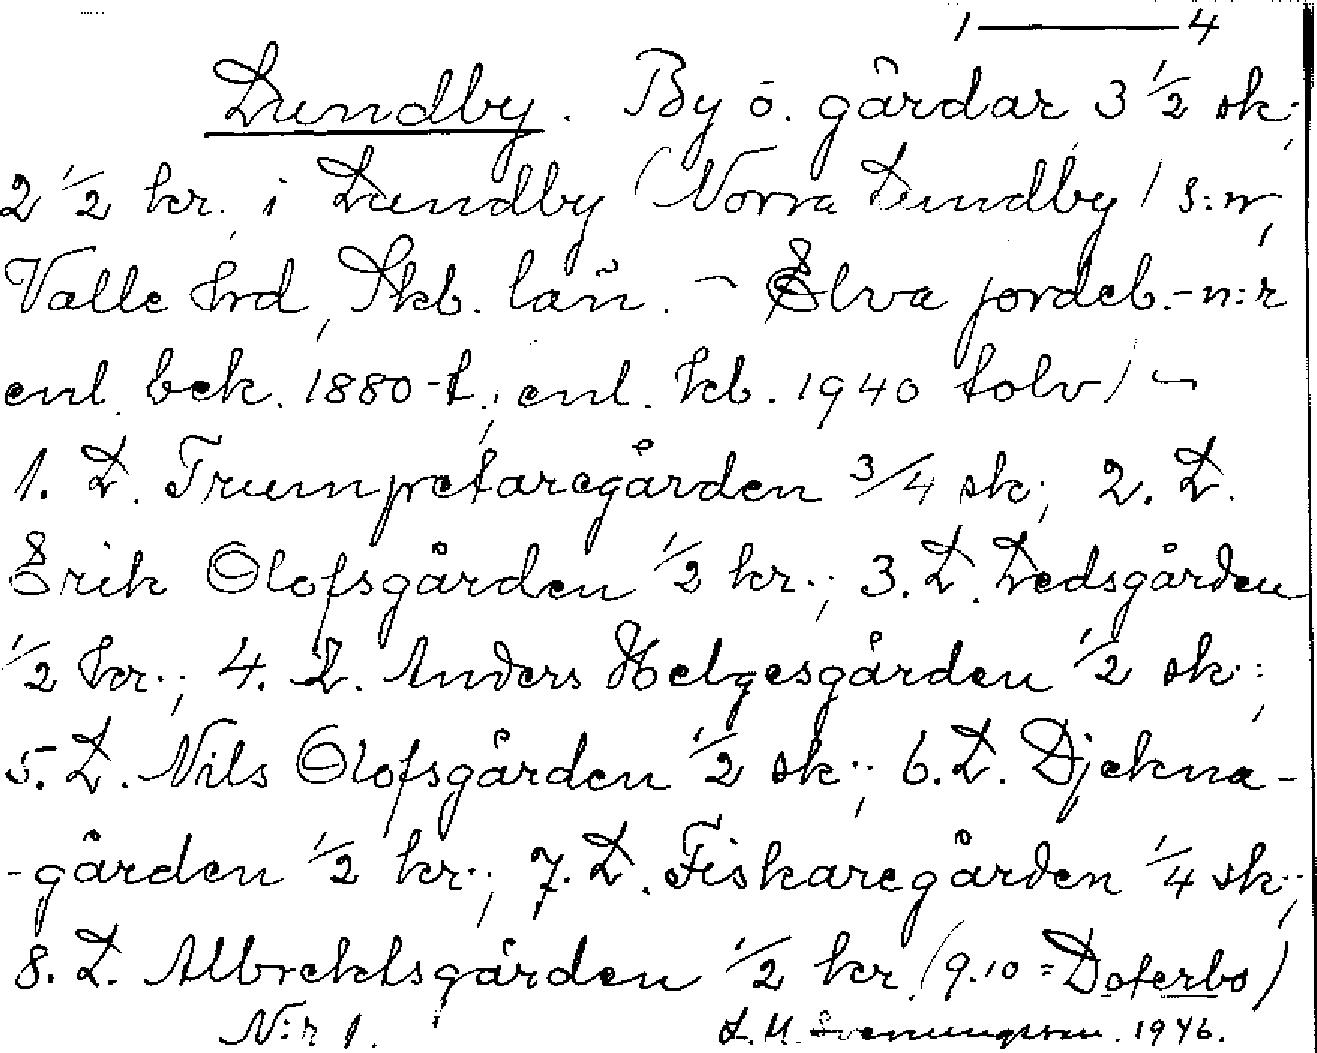 1 — 4
Lundby. By o. gårdar 3 1/2 sk.,
2 1/2 kr., i Lundby (Norra Lundby) s:n,
Valle hrd, Skb. län. – Elva jordeb.-n:r
enl. bek. 1880-t., enl. kb. 1940 tolv) –
1. L. Trumpetaregården 3/4 sk; 2. L.
Erik Olofsgården 1/2 kr.; 3. L. Ledsgården
1/2 kr.; 4. L. Anders Helgesgården 1/2 sk.;
5. L. Nils Olofsgården 1/2 sk.; 6. L. Djekna-
-gården 1/2 kr.; 7. L. Fiskaregården 1/4 sk.;
8. L. Albrektsgården 1/2 kr. (9.10 = Doterbo)
N:r 1. L. M. Svenungsson. 1946.